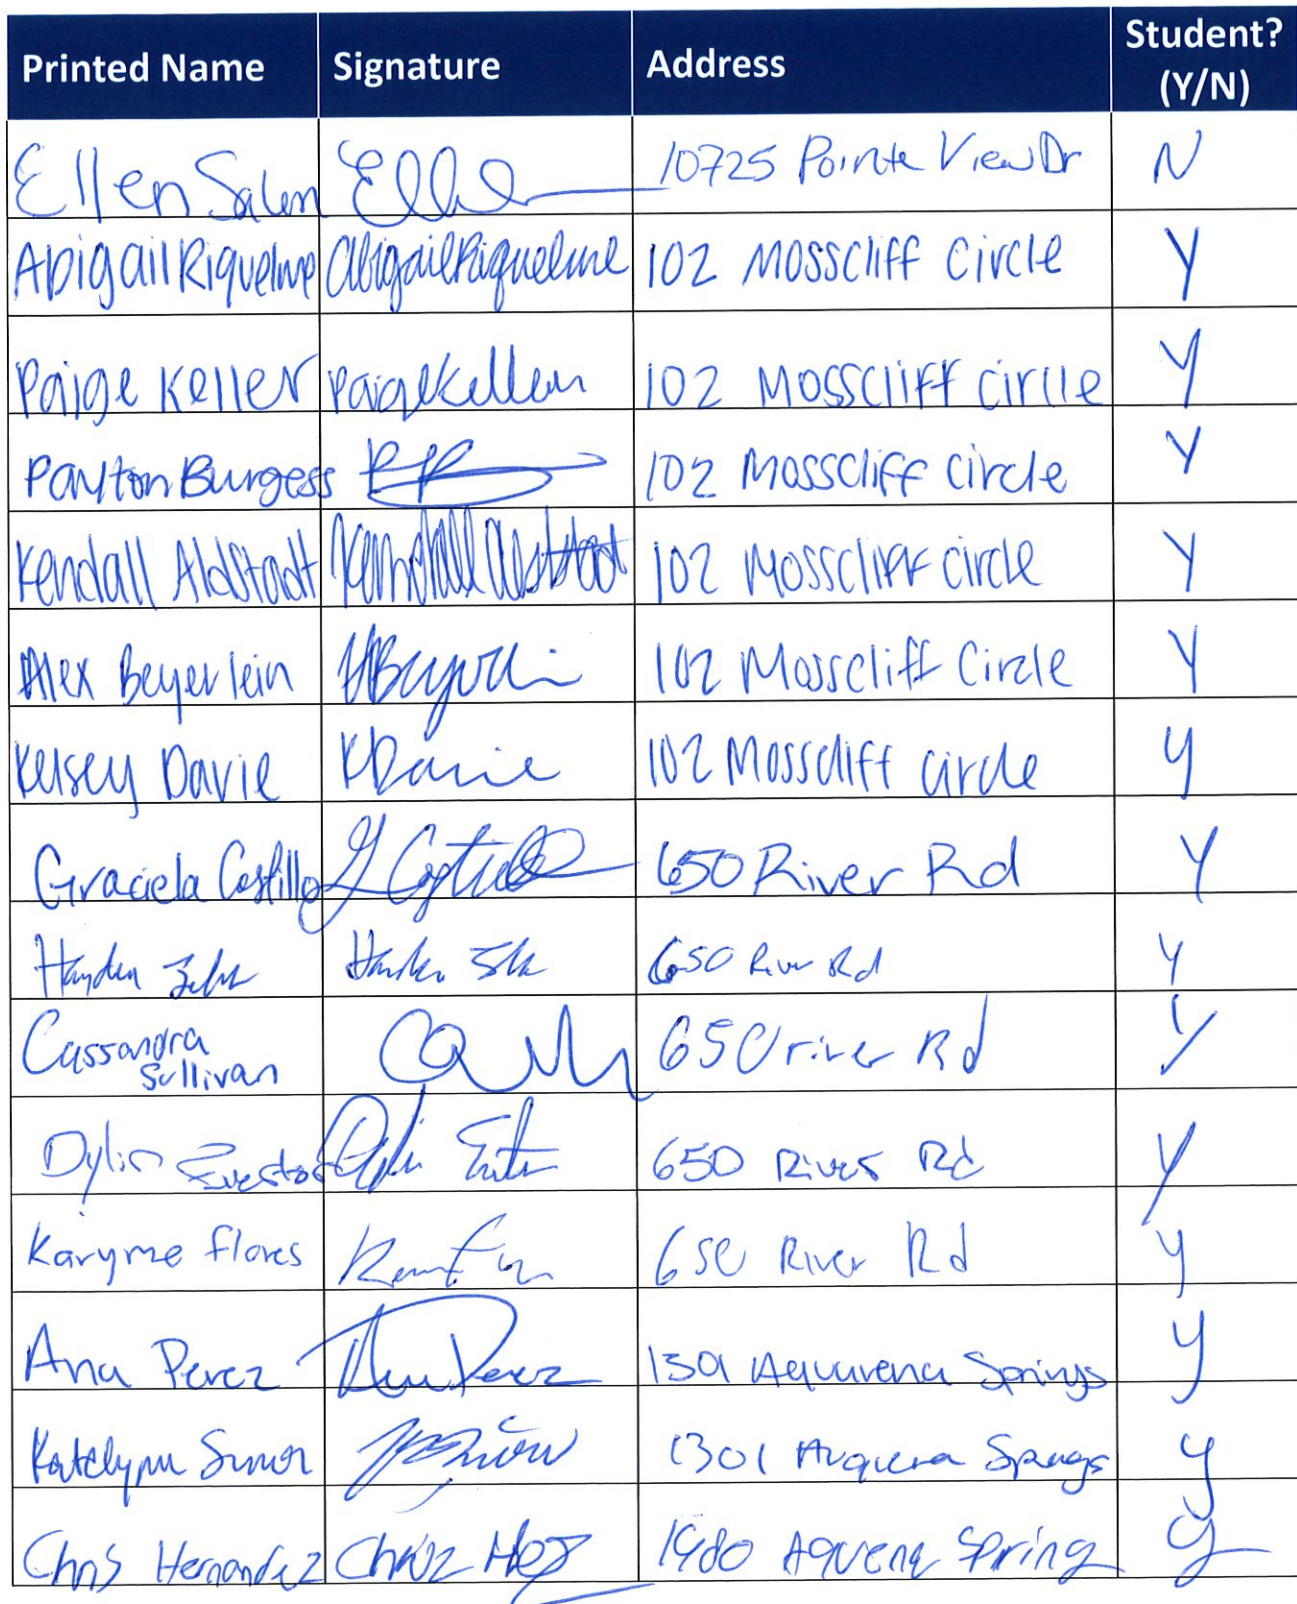 Printed Name Signature Address Student? (Y/N)
Ellen Salem 10725 Pointe View Dr N
Abigail Riquelme Abigail Riquelme 102 Mosscliff Circle Y
Paige Keller Paige Keller 102 Mosscliff circle Y
Payton Burgess 102 Mosscliff Circle Y
Kendall Aldstadt Kendall 102 Mosscliff circle Y
Alex Beyerlein 102 Mosscliff Circle Y
Kelsey Davie KDavie 102 Mosscliff circle y
Graciela Castillo G Castillo 650 River Rd Y
Hayden 650 River Rd Y
Cassandra Sullivan 650 river Rd Y
Dylin 650 River Rd Y
Karyme flores 650 River Rd y
Ana Perez Ana Perez 1301 Aquarena Springs y
Katelynn 1301 y
Chris Hernandez 1980 Aquena Spring y